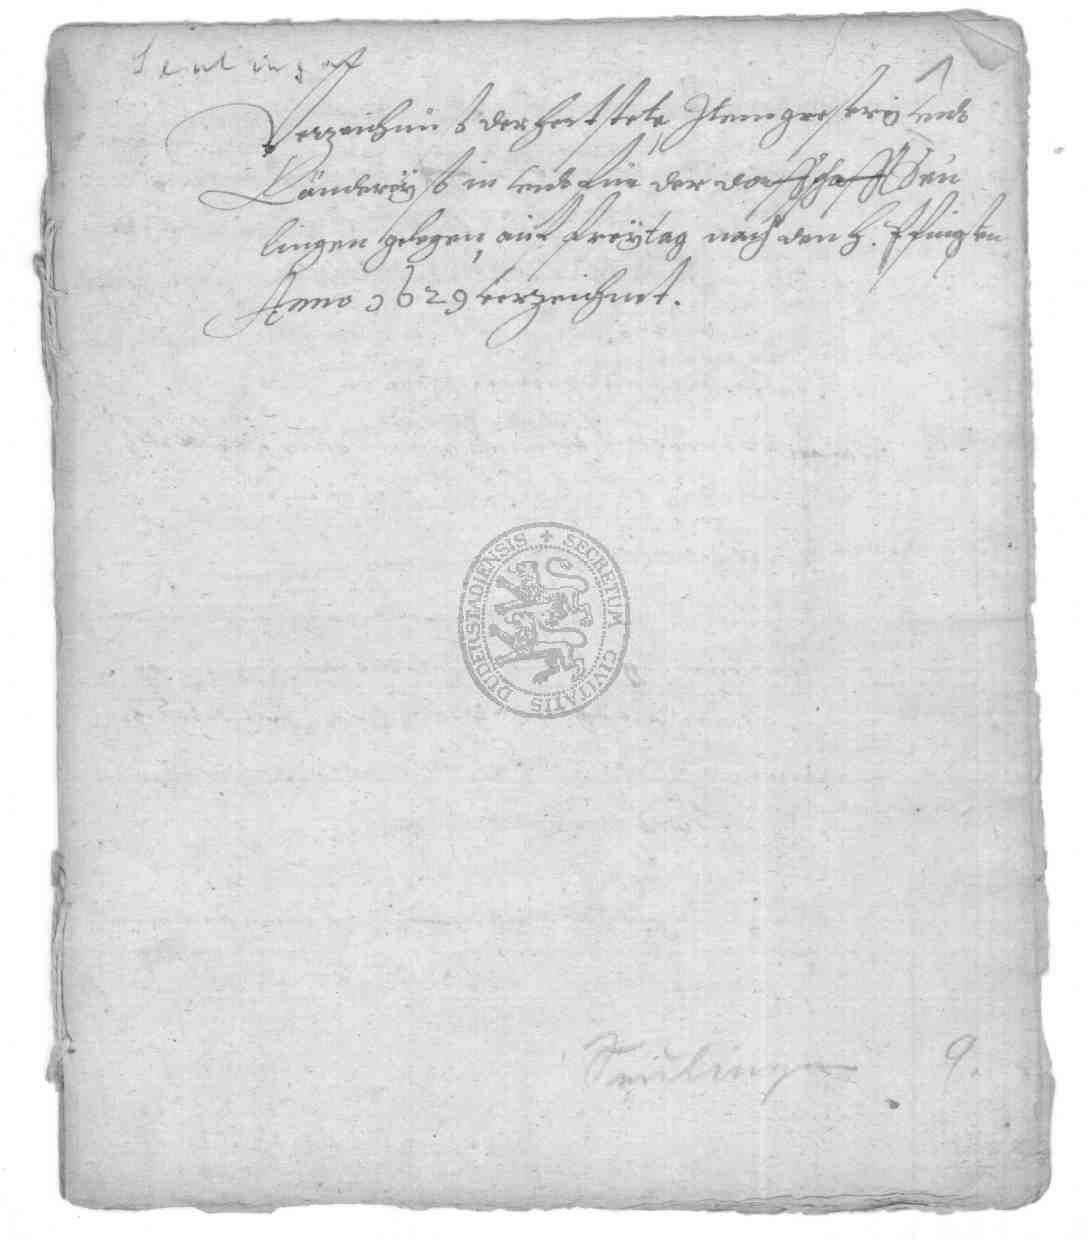 Seulingen
1
Verzeichnüs der Hertstete, Item greserey undt
Länderey so in undt für der dorffschafft Seu
lingen gelegen, auf Freytag nach den H. Pfingsten
Anno 1629 verzeichnet.
SECRETUM CIVITATIS DUDERSTADIENSIS
Seulingen 9.